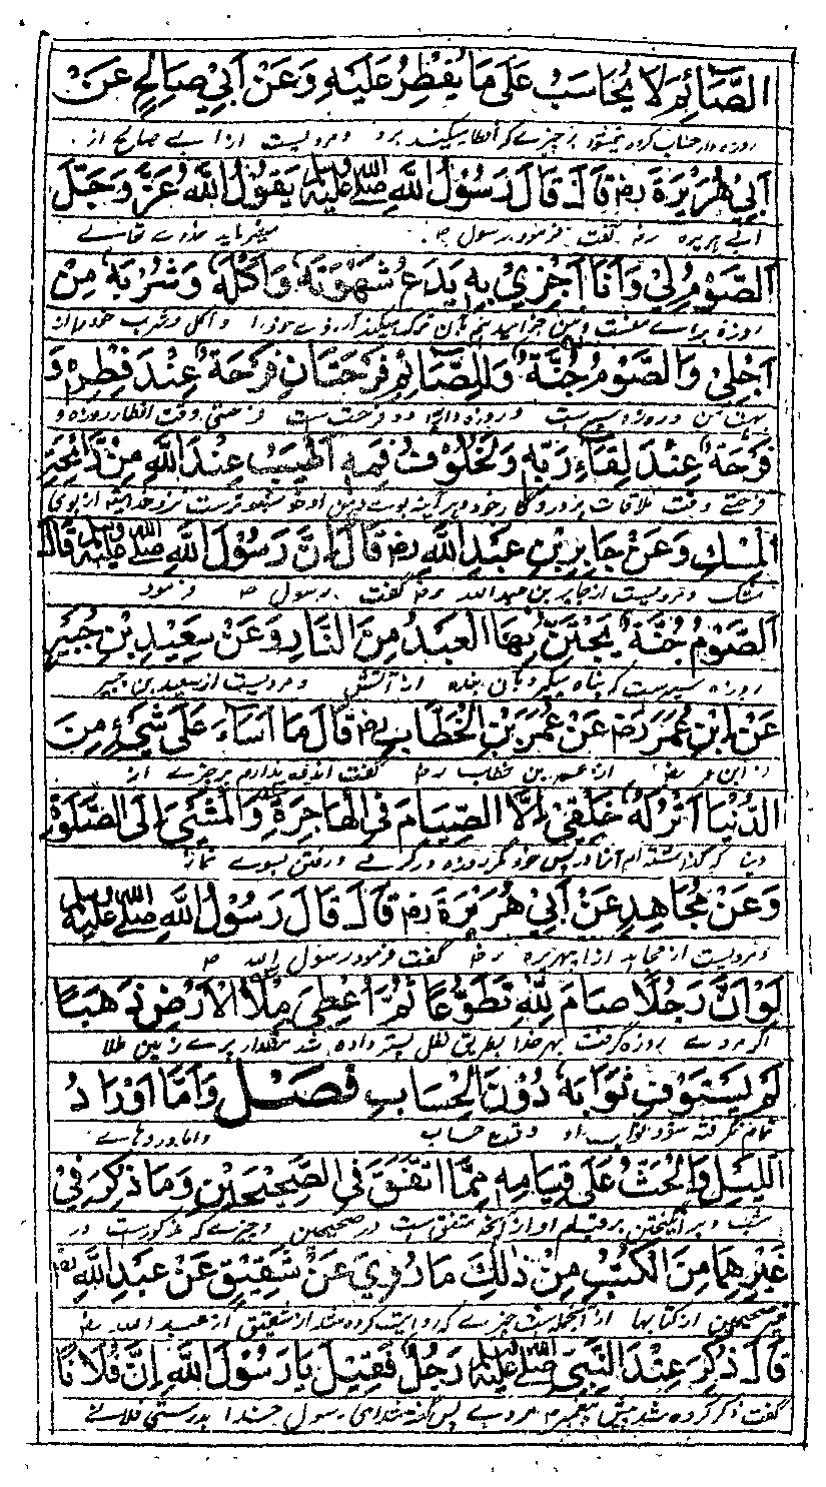 الصَّائِمُ لَا يُحَاسَبُ عَلَى مَا يُفْطِرُ عَلَيْهِ وَعَنْ أَبِي صَالِحٍ عَنْ
روزه دار حساب کرده نمیشود بر چیزے که افطار میکند برو و مرویست از ابے صالح از
أَبِي هُرَيْرَةَ رض قَالَ قَالَ رَسُولُ اللهِ صلى الله عليه وسلم يَقُولُ اللهُ عَزَّ وَجَلَّ
ابی هریره رض گفت فرمود رسول ص میفرماید خداے تعالے
اَلصَّوْمُ لِي وَأَنَا أَجْزِي بِهِ يَدَعُ شَهْوَتَهُ وَأَكْلَهُ وَشُرْبَهُ مِنْ
روزه براے منست و من جزا میدهم بآن ترک میکند آرزوے خود را و اکل و شرب خود را از
أَجْلِي وَالصَّوْمُ جُنَّةٌ وَلِلصَّائِمِ فَرْحَتَانِ فَرْحَةٌ عِنْدَ فِطْرِهِ وَ
من و روزه سپرست و روزه دار را دو فرحت ست فرحتی وقت افطار روزه و
فَرْحَةٌ عِنْدَ لِقَاءِ رَبِّهِ وَلَخُلُوفُ فَمِهِ أَطْيَبُ عِنْدَ اللهِ مِنْ
فرحتے وقت ملاقات پروردگار خود و هر آینه بوے دهن او خوشبوترست نزد خدا از بوی
الْمِسْكِ وَعَنْ جَابِرِ بْنِ عَبْدِ اللهِ رض قَالَ إِنَّ رَسُولَ اللهِ صلى الله عليه وسلم قَالَ
مشک و مرویست از جابر بن عبدالله رض گفت رسول ص فرمود
اَلصَّوْمُ جُنَّةٌ يَجْتَنُّ بِهَا الْعَبْدُ مِنَ النَّارِ وَعَنْ سَعِيدِ بْنِ جُبَيْرٍ
روزه سپرست که پناه میگیرد بآن بنده از آتش و مرویست از سعید بن جبیر
عَنْ اِبْنِ عُمَرَ رض عَنْ عُمَرَ بْنِ الْخَطَّابِ رض قَالَ مَا آسَاءَ عَلَى شَيْءٍ مِنَ
از ابن عمر رض از عمر بن خطاب رض گفت بر چیزے از
الدُّنْيَا أَتْرُكُهُ خَلْفِي إِلَّا الصِّيَامَ فِي الْهَاجِرَةِ وَالْمَشْيَ إِلَى الصَّلٰوةِ
دنیا که آنرا در پس خود مگر روزه در گرمے و رفتن بسوے نماز
وَعَنْ مُجَاهِدٍ عَنْ أَبِي هُرَيْرَةَ رض قَالَ قَالَ رَسُولُ اللهِ صلى الله عليه وسلم
و مرویست از مجاهد از ابیهریره رض گفت فرمود رسول الله ص
لَوْ أَنَّ رَجُلًا صَامَ لِلّٰهِ تَطَوُّعًا ثُمَّ أُعْطِيَ مِلْأَ الْأَرْضِ ذَهَبًا
اگر مردے روزه گرفت بهر خدا بطریق نفل پستر داده شد مقدار پرے زمین طلا
لَمْ يَسْتَوْفِ ثَوَابَهُ دُوْنَ الْحِسَابِ فَصْلٌ وَأَمَّا أَوْرَادُ
تمام نگرفته شود ثواب او وقت حساب و اما وردهاے
اللَّيْلِ وَالْحَثُّ عَلَى قِيَامِهِ مِمَّا اتَّفَقَ فِي الصَّحِيحَيْنِ وَمَا ذُكِرَ فِي
شب و برانگیختن بر قیام او از آنچه متفق ست در صحیحین و چیزے که مذکورست در
غَيْرِهِمَا مِنَ الْكُتُبِ مِنْ ذٰلِكَ مَا رُوِيَ عَنْ شَقِيقٍ عَنْ عَبْدِ اللهِ رض
غیر صحیحین از کتابها از آنجمله ست چیزے که روایت کرده شد از شقیق از عبد الله رض
قَالَ ذُكِرَ عِنْدَ النَّبِيِّ صلى الله عليه وسلم رَجُلٌ فَقِيلَ يَا رَسُولَ اللهِ إِنَّ فُلَانًا
گفت ذکر کرده شد پیش پیغمبر ص مردے پس گفته شد اے رسول خدا بدرستی فلانے